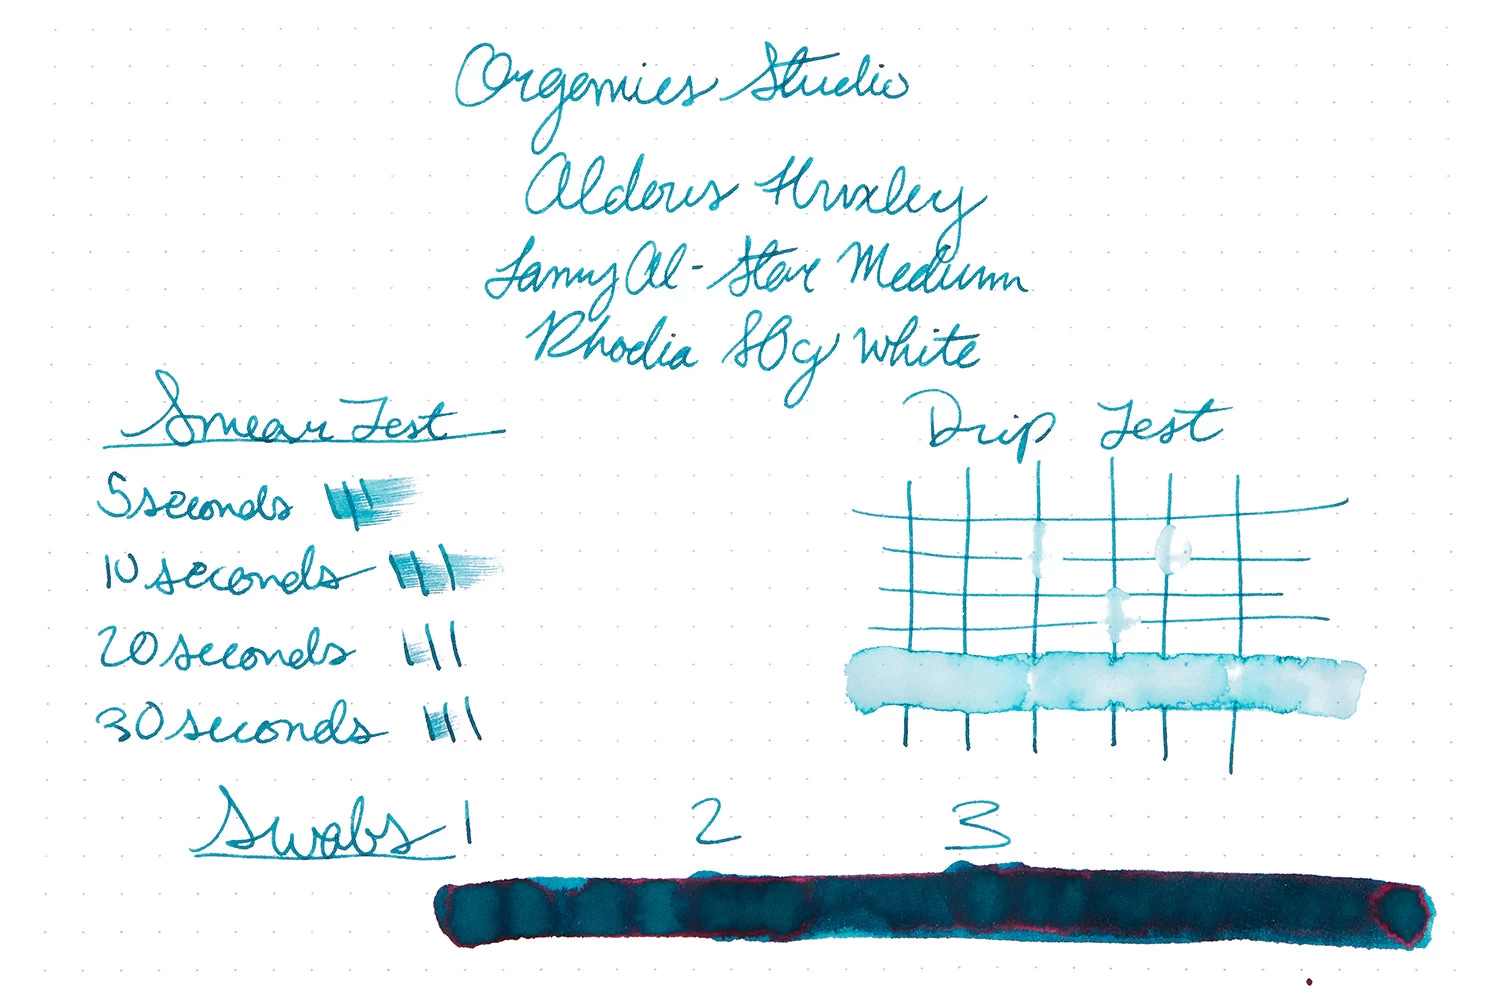 Organics Studio
Aldous Huxley
Lamy Al-Star Medium
Rhodia 80g White
Smear Test
Drip Test
5 seconds
10 seconds
20 seconds
30 seconds
Swabs 1 2 3